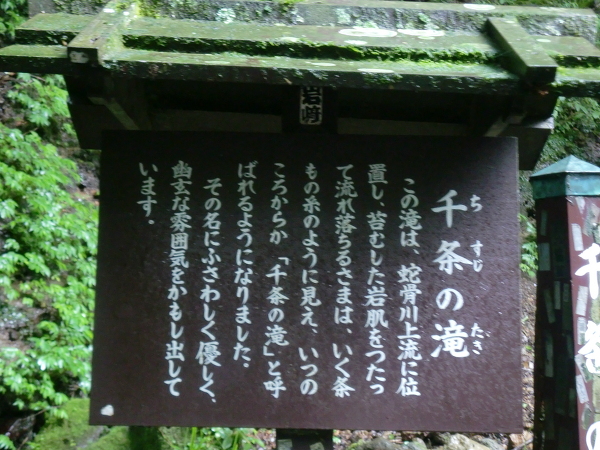 岩﨑
千条の滝
ちすじ
だき
この滝は、蛇骨川上流に位
置し、苔むした岩肌をつたっ
て流れ落ちるさまは、いく条
もの糸のように見え、いつの
ころからか「千条の滝」と呼
ばれるようになりました。
その名にふさわしく優しく、
幽玄な雰囲気をかもし出して
います。
千条の